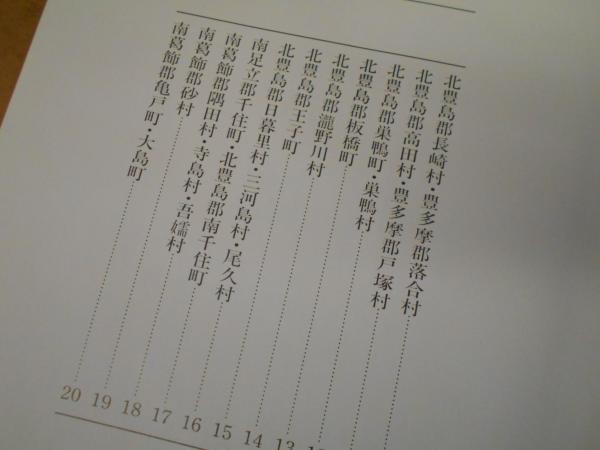 北豊島郡長崎村・豊多摩郡落合村
北豊島郡高田村・豊多摩郡戸塚村
北豊島郡巣鴨町・巣鴨村
北豊島郡板橋町 13
北豊島郡瀧野川村 14
北豊島郡王子町 15
北豊島郡日暮里村・三河島村・尾久村 16
南足立郡千住町・北豊島郡南千住町 17
南葛飾郡隅田村・寺島村・吾嬬村 18
南葛飾郡砂村 19
南葛飾郡亀戸町・大島町 20